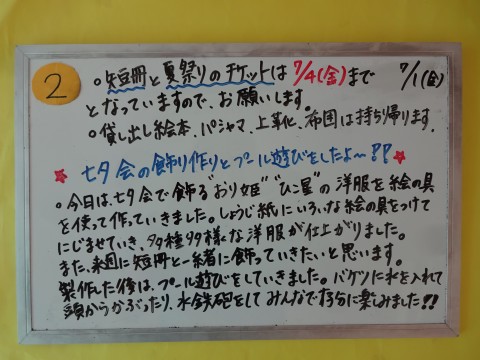 2
○短冊と夏祭りのチケットは7/4(金)まで 7/1(金)
となっていますので、お願いします。
○貸し出し絵本、パジャマ、上靴、布団は持ち帰ります。
★七夕会の飾り作りとプール遊びをしたよ〜!!★
○今日は、七夕会で飾る"おり姫""ひこ星"の洋服を絵の具
を使って作っていきました。しょうじ紙にいろいろな絵の具をつけて
にじませていき、多種多様な洋服が仕上がりました。
また、来週に短冊と一緒に飾っていきたいと思います。
製作した後は、プール遊びをしていきました。バケツに水を入れて
頭からかぶったり、水鉄砲をして みんなで楽しみました!!